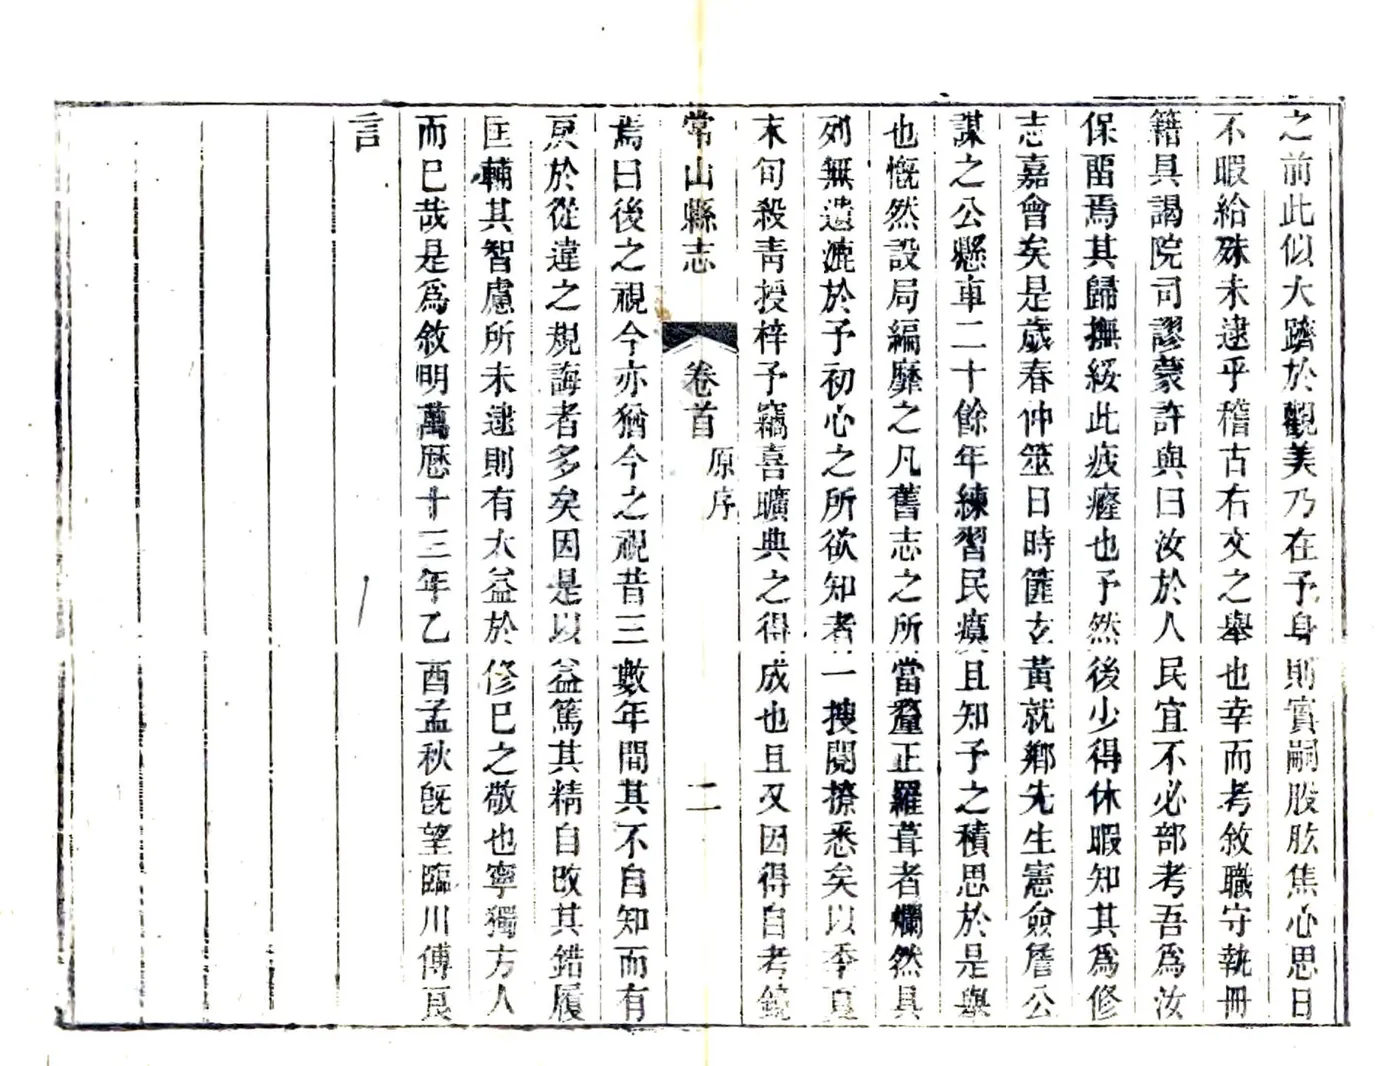 之前此似大躋於觀美乃在予身則實嗣股肱焦心思日
不暇給殊未逮乎稽古右文之舉也幸而考敘職守執冊
籍具謁院司謬蒙許與曰汝於人民宜不必部考吾為汝
保畱焉其歸撫綏此疲癃也予然後少得休暇知其為修
志嘉會矣是歲春仲筮日時篚玄黃就鄉先生憲僉詹公
謀之公懸車二十餘年練習民瘼且知予之積思於是舉
也慨然設局編靡之凡舊志之所當釐正羅葺者爛然具
列無遺漉於予初心之所欲知者一搜閱撩悉矣以季夏
末旬殺青授梓予竊喜曠典之得成也且又因得自考鏡
常山縣志 卷首 原序 二
焉曰後之視今亦猶今之視昔三數年間其不自知而有
戾於從違之規誨者多矣因是以益篤其精自改其錯履
匡輔其智慮所未逮則有太益於修巳之敬也寧獨方人
而巳哉是為敘明萬曆十三年乙酉孟秋旣望臨川傅良
言